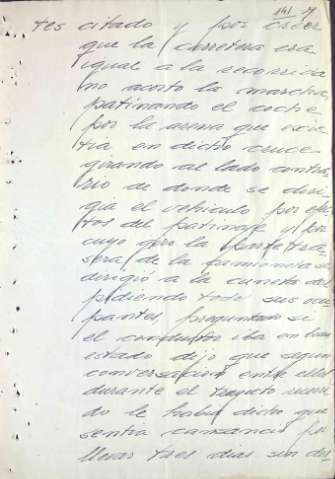 141
tes citado y por creer
que la carretera era
igual a la recorrida
no acorto la marcha
patinando el coche
por la arena que exis
tia en dicho cruce
girando al lado contra
rio de donde se diri
gia el vehiculo por efec
tos del patinaje y por
cuyo giro la parte tra
sera de la furgoneta se
dirigió a la cuneta des
pidiendo todo sus ocu
pantes, preguntado si
el conductor iba en buen
estado dijo que segun
conversación entre ellos
durante el trayecto
do le habia dicho que
sentia cansancio por
llevar tres dias sin des